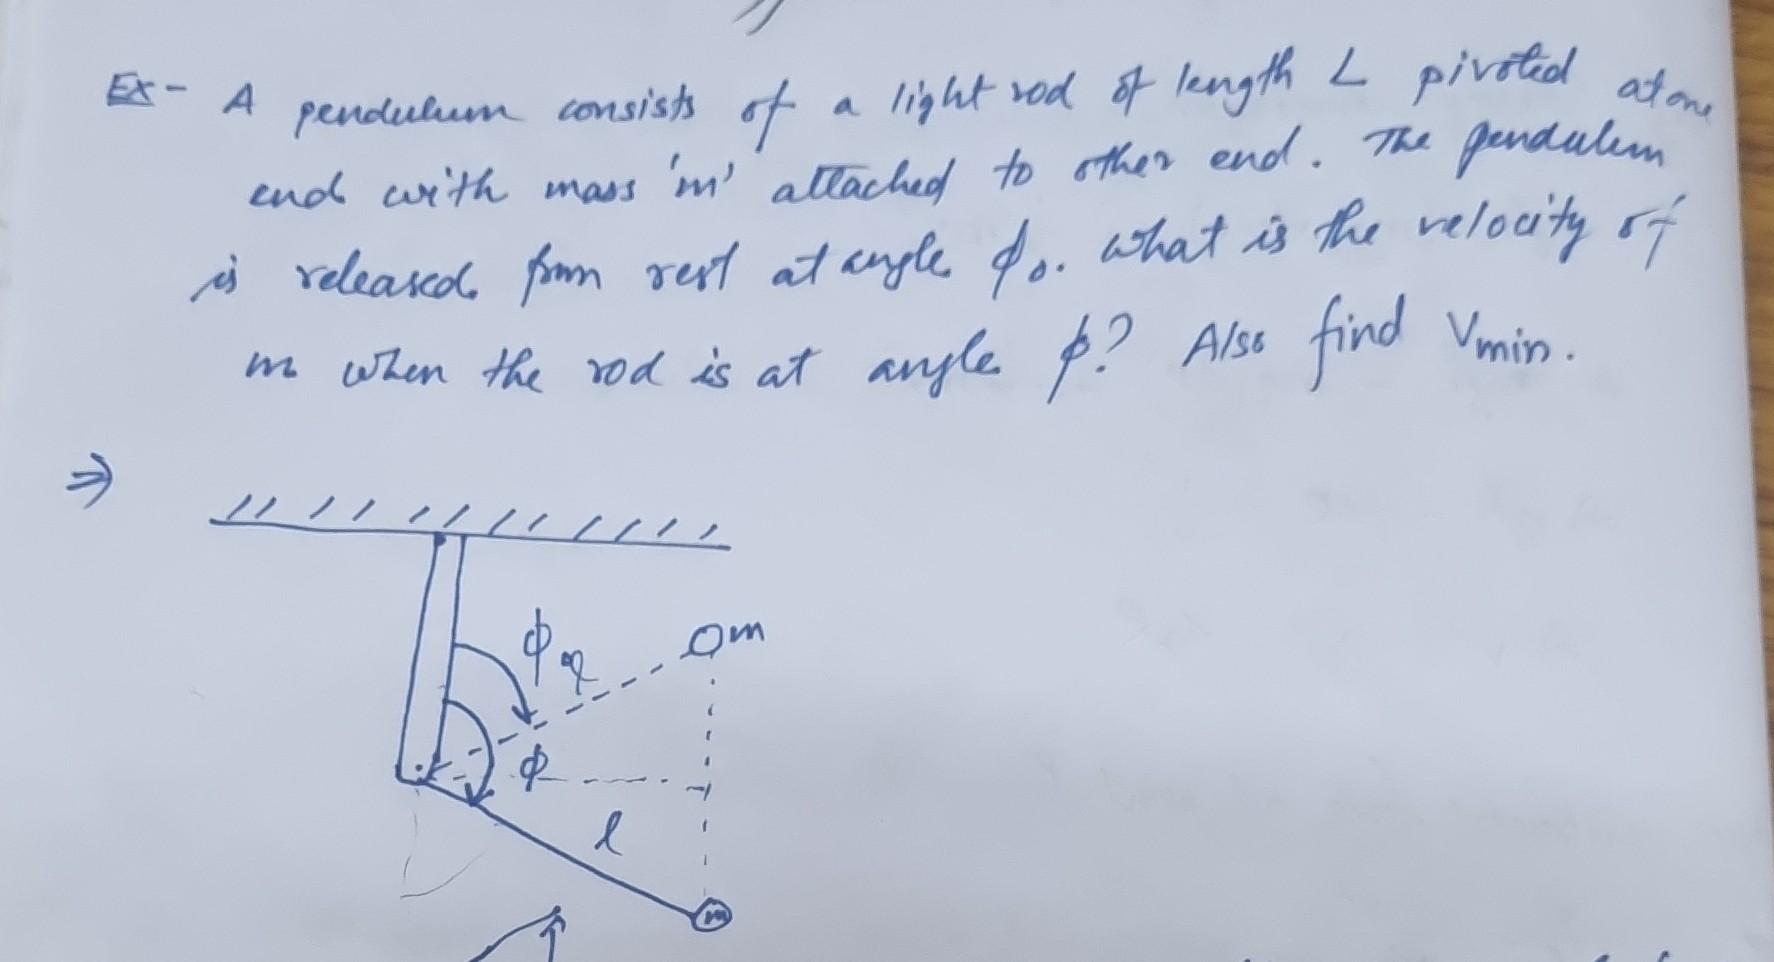 Ex- A pendulum consists of a light rod of length L pivoted at one
end with mass 'm' attached to other end. The pendulum
is released from rest at angle ϕ₀. What is the velocity of
m when the rod is at angle ϕ? Also find Vmin.
⇒
ϕ m
ϕ
l
m